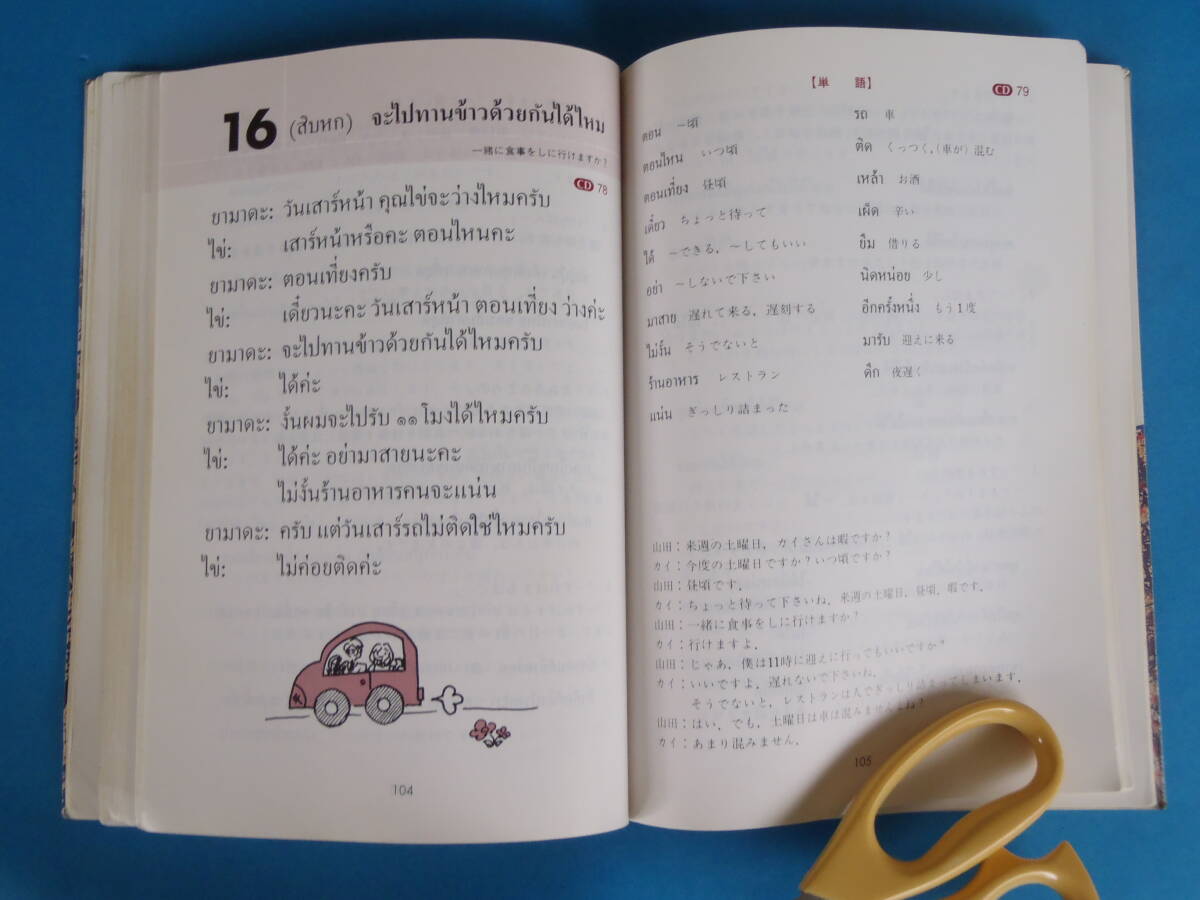 16 (สิบหก) จะไปทานข้าวด้วยกันได้ไหม
一緒に食事をしに行けますか?
CD 78
ยามาดะ: วันเสาร์หน้า คุณไข่จะว่างไหมครับ
ไข่: เสาร์หน้าหรือคะ ตอนไหนคะ
ยามาดะ: ตอนเที่ยงครับ
ไข่: เดี๋ยวนะคะ วันเสาร์หน้า ตอนเที่ยง ว่างค่ะ
ยามาดะ: จะไปทานข้าวด้วยกันได้ไหมครับ
ไข่: ได้ค่ะ
ยามาดะ: งั้นผมจะไปรับ ๑๑ โมงได้ไหมครับ
ไข่: ได้ค่ะ อย่ามาสายนะคะ
ไม่งั้นร้านอาหารคนจะแน่น
ยามาดะ: ครับ แต่วันเสาร์รถไม่ติดใช่ไหมครับ
ไข่: ไม่ค่อยติดค่ะ
104
【単 語】
CD 79
ตอน ～頃
ตอนไหน いつ頃
ตอนเที่ยง 昼頃
เดี๋ยว ちょっと待って
ได้ ～できる, ～してもいい
อย่า ～しないで下さい
มาสาย 遅れて来る, 遅刻する
ไม่งั้น そうでないと
ร้านอาหาร レストラン
แน่น ぎっしり詰まった
รถ 車
ติด くっつく, (車が)混む
เหล้า お酒
เผ็ด 辛い
ยืม 借りる
นิดหน่อย 少し
อีกครั้งหนึ่ง もう1度
มารับ 迎えに来る
ดึก 夜遅く
山田:来週の土曜日, カイさんは暇ですか?
カイ:今度の土曜日ですか?いつ頃ですか?
山田:昼頃です.
カイ:ちょっと待って下さいね. 来週の土曜日, 昼頃, 暇です.
山田:一緒に食事をしに行けますか?
カイ:行けますよ.
山田:じゃあ, 僕は11時に迎えに行ってもいいですか?
カイ:いいですよ. 遅れないで下さいね.
そうでないと, レストランは人でぎっしり詰まってしまいます.
山田:はい, でも, 土曜日は車は混みませんよね?
カイ:あまり混みません.
105